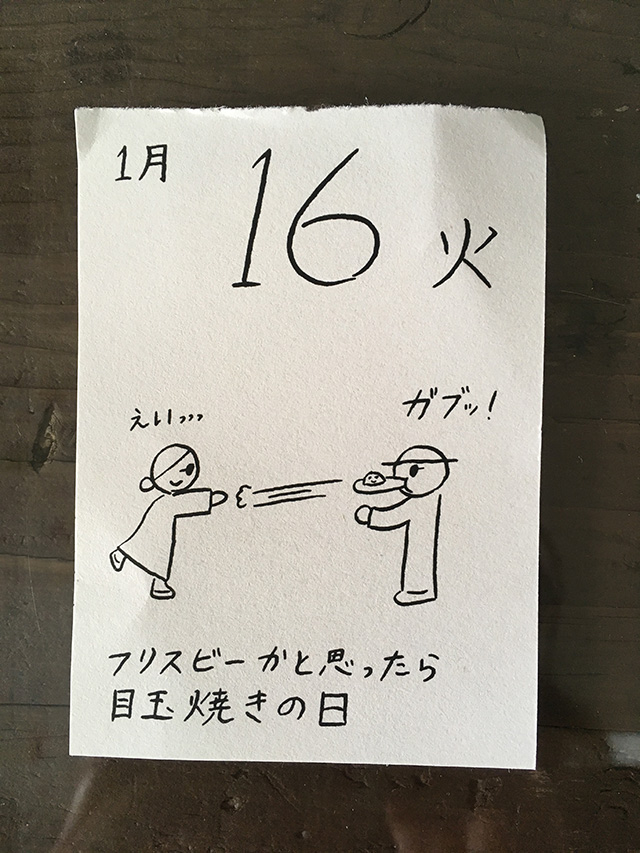 1月
16 火
えいっっっ
ガブッ!
フリスビーかと思ったら
目玉焼きの日